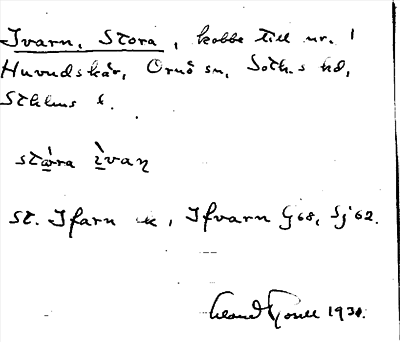 Ivarn, Stora, kobbe till nr. 1
Huvudskär, Ornö sn, Soth.s hd,
Sthlms l.
stωra ìvaɳ
St. Ifarn k, Ifvarn G68, Sj 62.
1930.